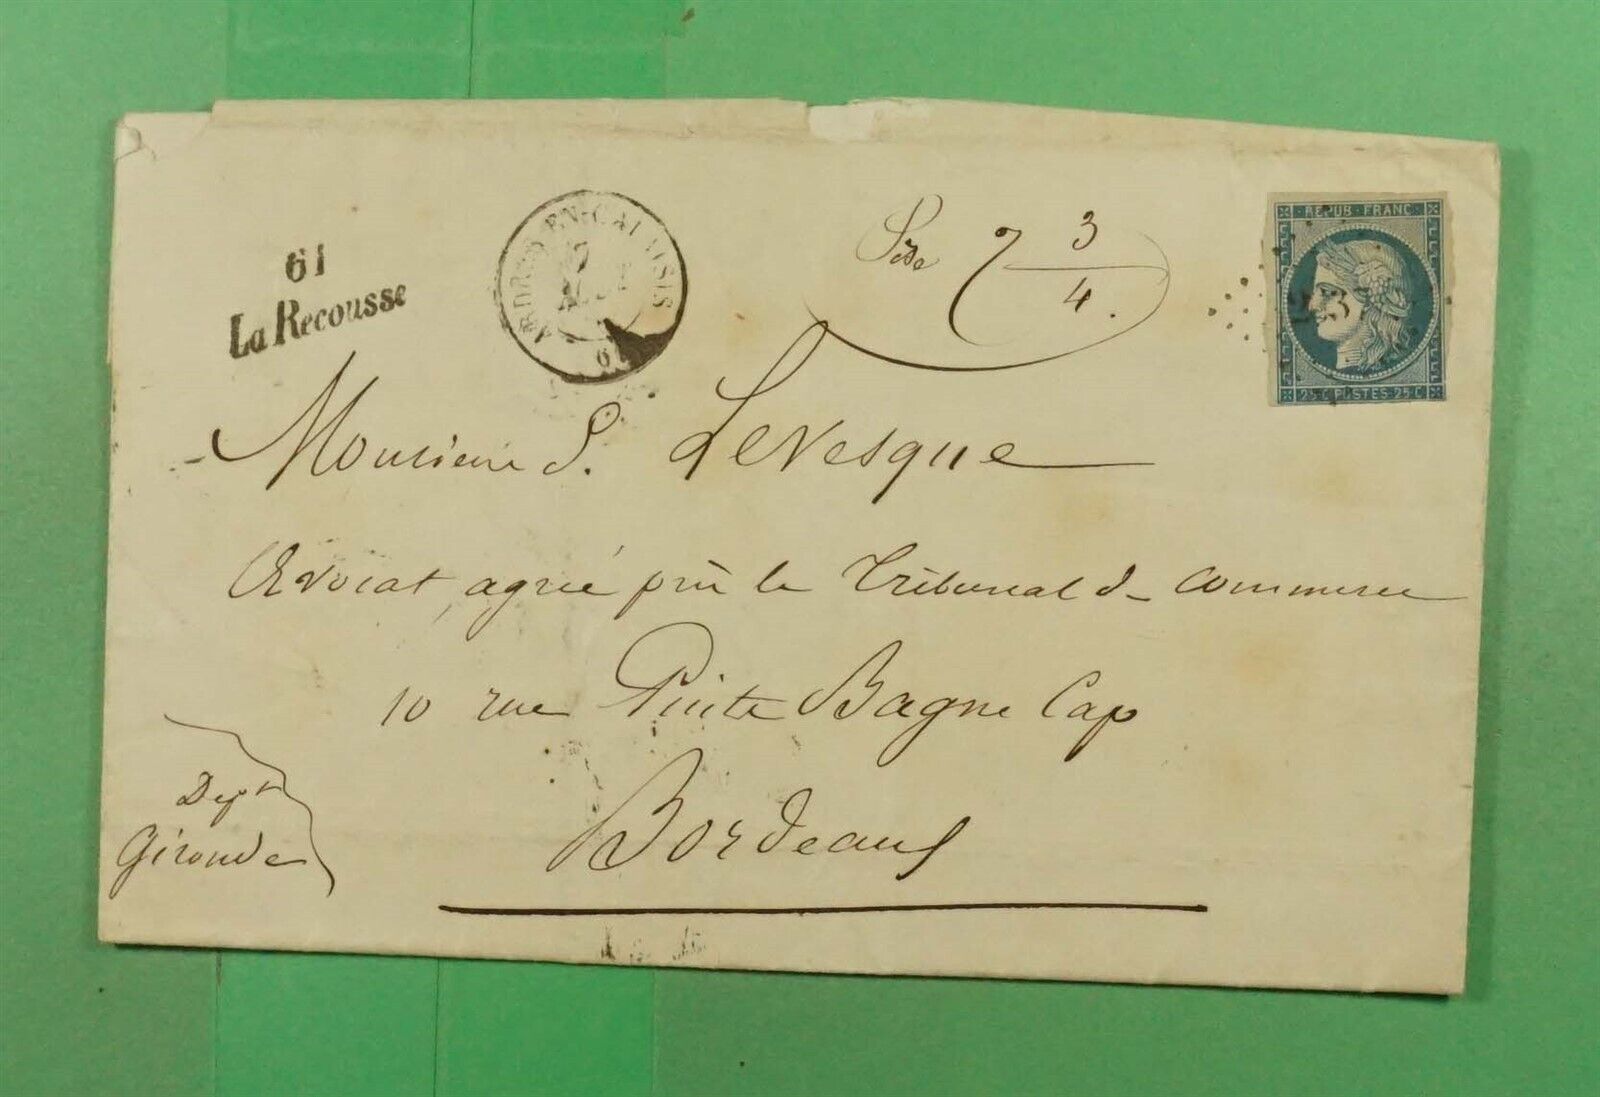 61
La Recousse
ARDRES-EN-CALAISIS
7
61
Pèse 7 3/4.
REPUB. FRANC.
25 C POSTES 25 C
Monsieur S. Levesque
Avocat agréé près le Tribunal de Commerce
10 rue Puits Bagne Cap
Bordeaux
Dept
Gironde